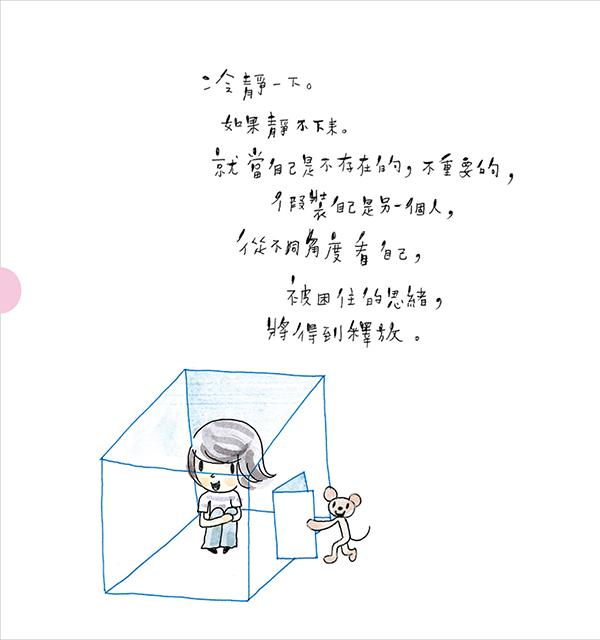 冷靜一下。
如果靜不下來。
就當自己是不存在的，不重要的，
假裝自己是另一個人，
從不同角度看自己，
被困住的思緒，
將得到釋放。